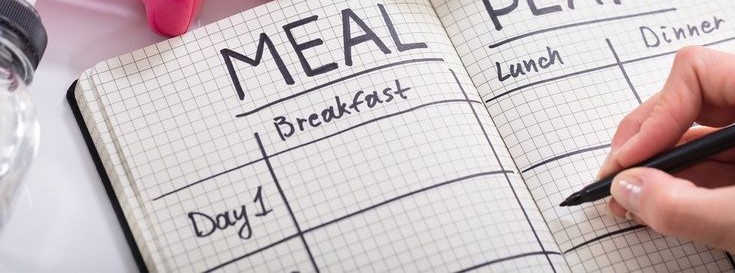 MEAL PLAN
Breakfast Lunch Dinner
Day 1